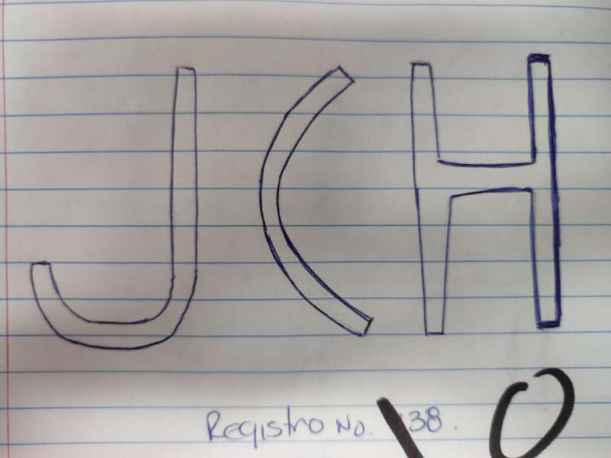 JCH
Registro No. 38.
10